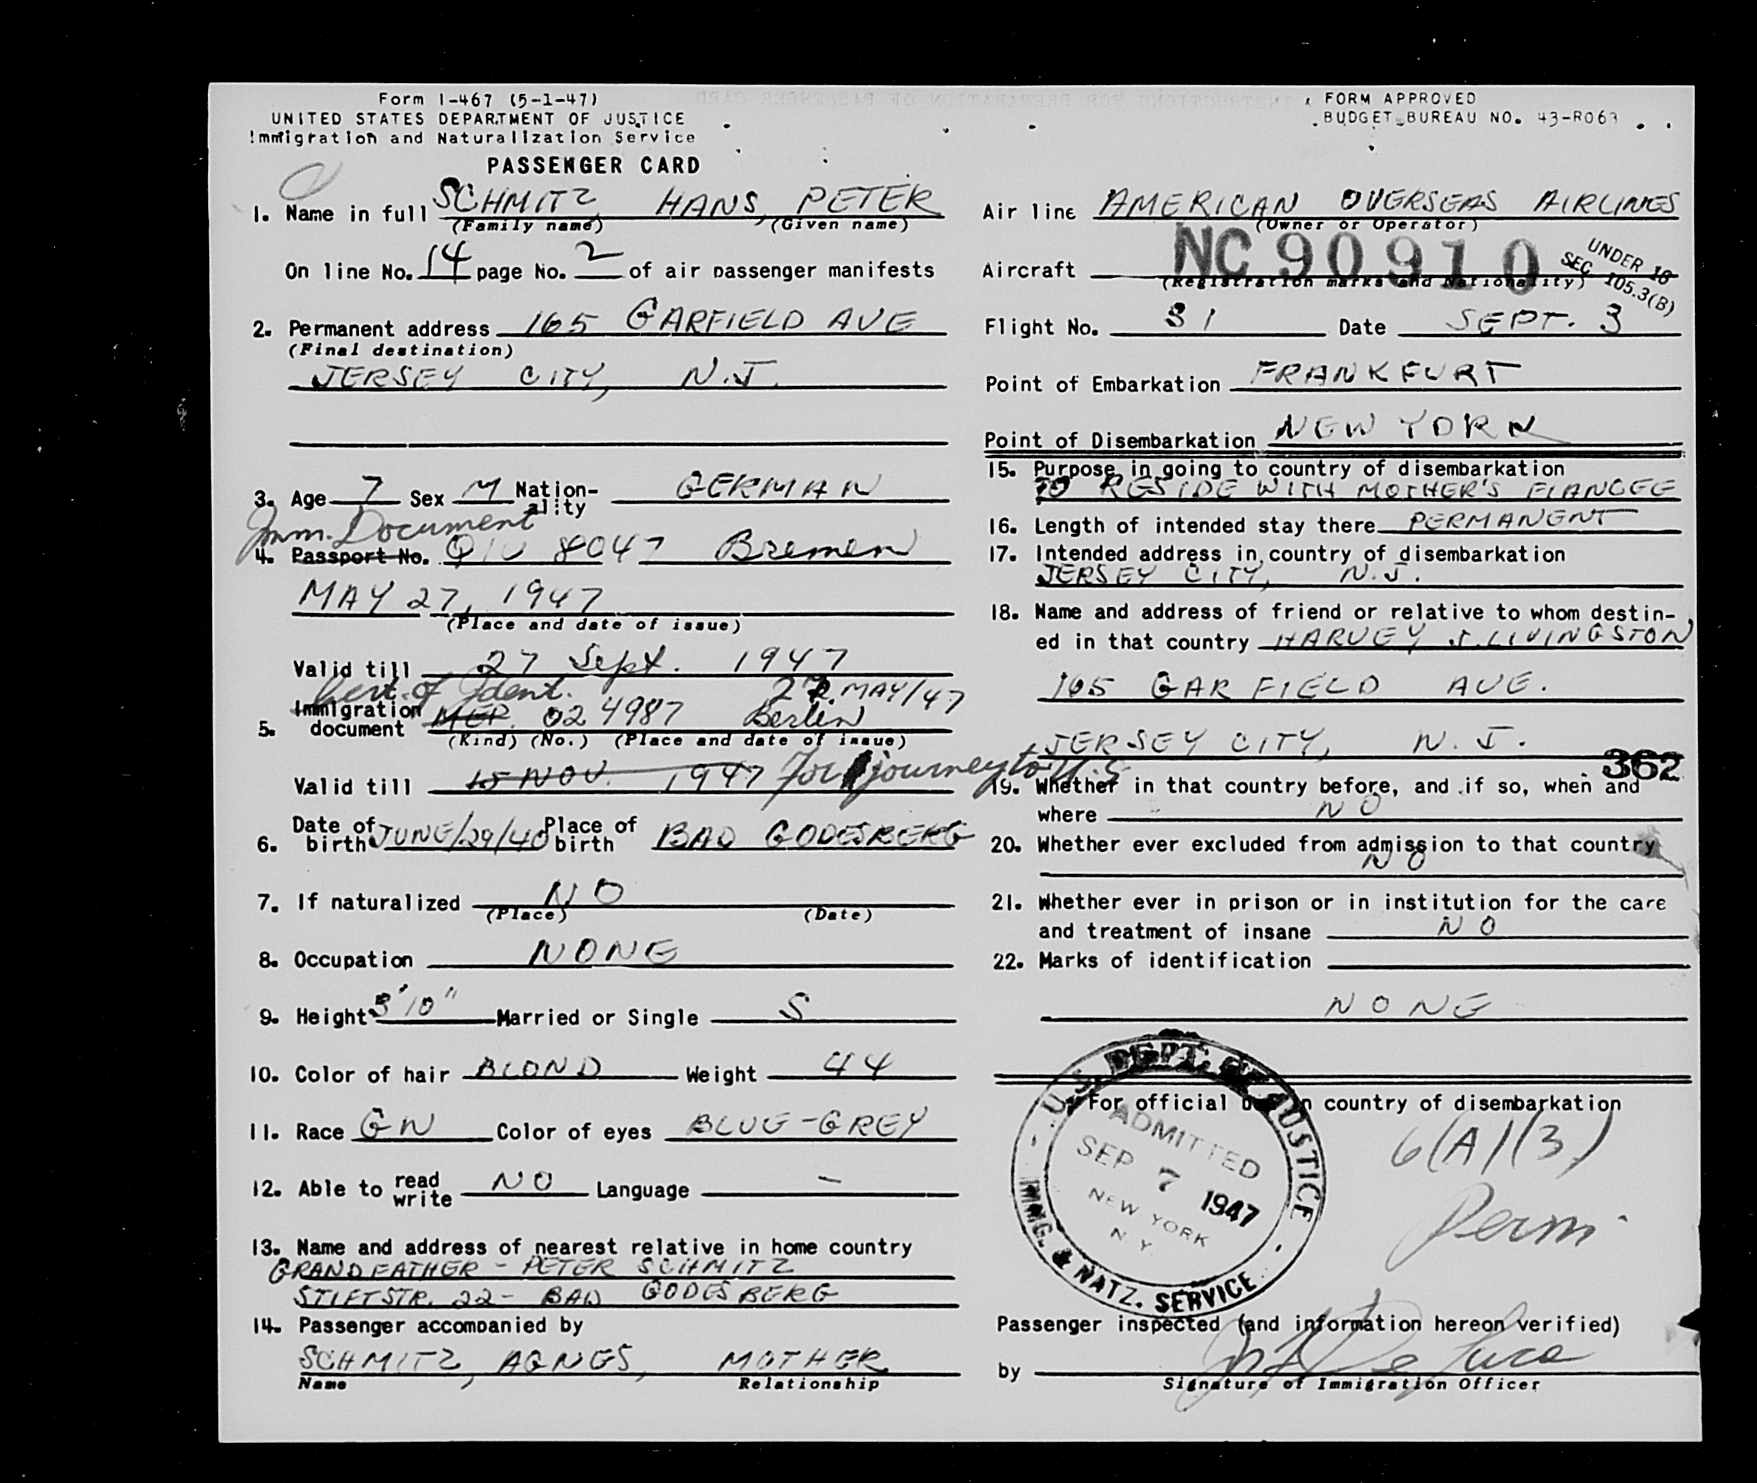 Form I-467 (5-1-47)
UNITED STATES DEPARTMENT OF JUSTICE
Immigration and Naturalization Service
PASSENGER CARD
FORM APPROVED
BUDGET BUREAU NO. 43-R063
1. Name in full SCHMITZ, HANS, PETER
(Family name) (Given name)
On line No. 14 page No. 2 of air passenger manifests
2. Permanent address 165 GARFIELD AVE
(Final destination)
JERSEY CITY, N.J.
3. Age 7 Sex M Nation-ality GERMAN
Imm. Document
4. Passport No. 8047 Bremen
MAY 27, 1947
(Place and date of issue)
Valid till 27 Sept. 1947
Cert. of Ident. 27. MAY/47
5. Immigration document MEP. 024987 Berlin
(Kind) (No.) (Place and date of issue)
Valid till 15 NOV. 1947 For journey to U.S
6. Date of birth JUNE/29/40 Place of birth BAD GODESBERG
7. If naturalized NO
(Place) (Date)
8. Occupation NONE
9. Height 3'10" Married or Single S
10. Color of hair BLOND Weight 44
11. Race GN Color of eyes BLUE-GREY
12. Able to read write NO Language —
13. Name and address of nearest relative in home country
GRANDFATHER - PETER SCHMITZ
STIFTSTR. 22 - BAD GODESBERG
14. Passenger accompanied by
SCHMITZ, AGNES, MOTHER
Name Relationship
Air line AMERICAN OVERSEAS AIRLINES
(Owner or Operator)
Aircraft NC 90910
(Registration marks and Nationality)
UNDER 16
SEC 105.3(B)
Flight No. 81 Date SEPT. 3
Point of Embarkation FRANKFURT
Point of Disembarkation NEW YORK
15. Purpose in going to country of disembarkation
TO RESIDE WITH MOTHER'S FIANCEE
16. Length of intended stay there PERMANENT
17. Intended address in country of disembarkation
JERSEY CITY, N.J.
18. Name and address of friend or relative to whom destin-
ed in that country HARVEY S. LIVINGSTON
165 GARFIELD AVE.
JERSEY CITY, N.J.
362
19. Whether in that country before, and if so, when and
where NO
20. Whether ever excluded from admission to that country
NO
21. Whether ever in prison or in institution for the care
and treatment of insane NO
22. Marks of identification
NONE
For official use in country of disembarkation
U.S. DEPT. OF JUSTICE
ADMITTED
SEP 7 1947
NEW YORK
N.Y.
IMMG. & NATZ. SERVICE
6(A)(3)
Perm.
Passenger inspected (and information hereon verified)
by De Luca
Signature of Immigration Officer